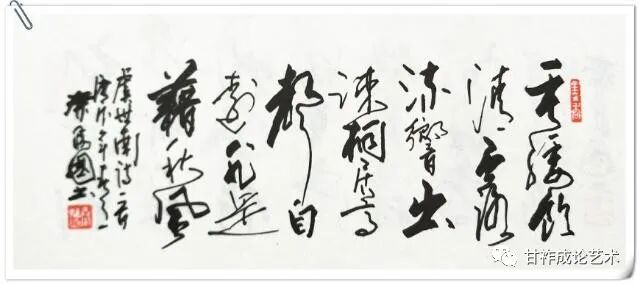 垂緌飲
清露
流響出
疎桐居高
聲自
遠非是
藉秋風
虞世南詩一首
甘祚成论艺术